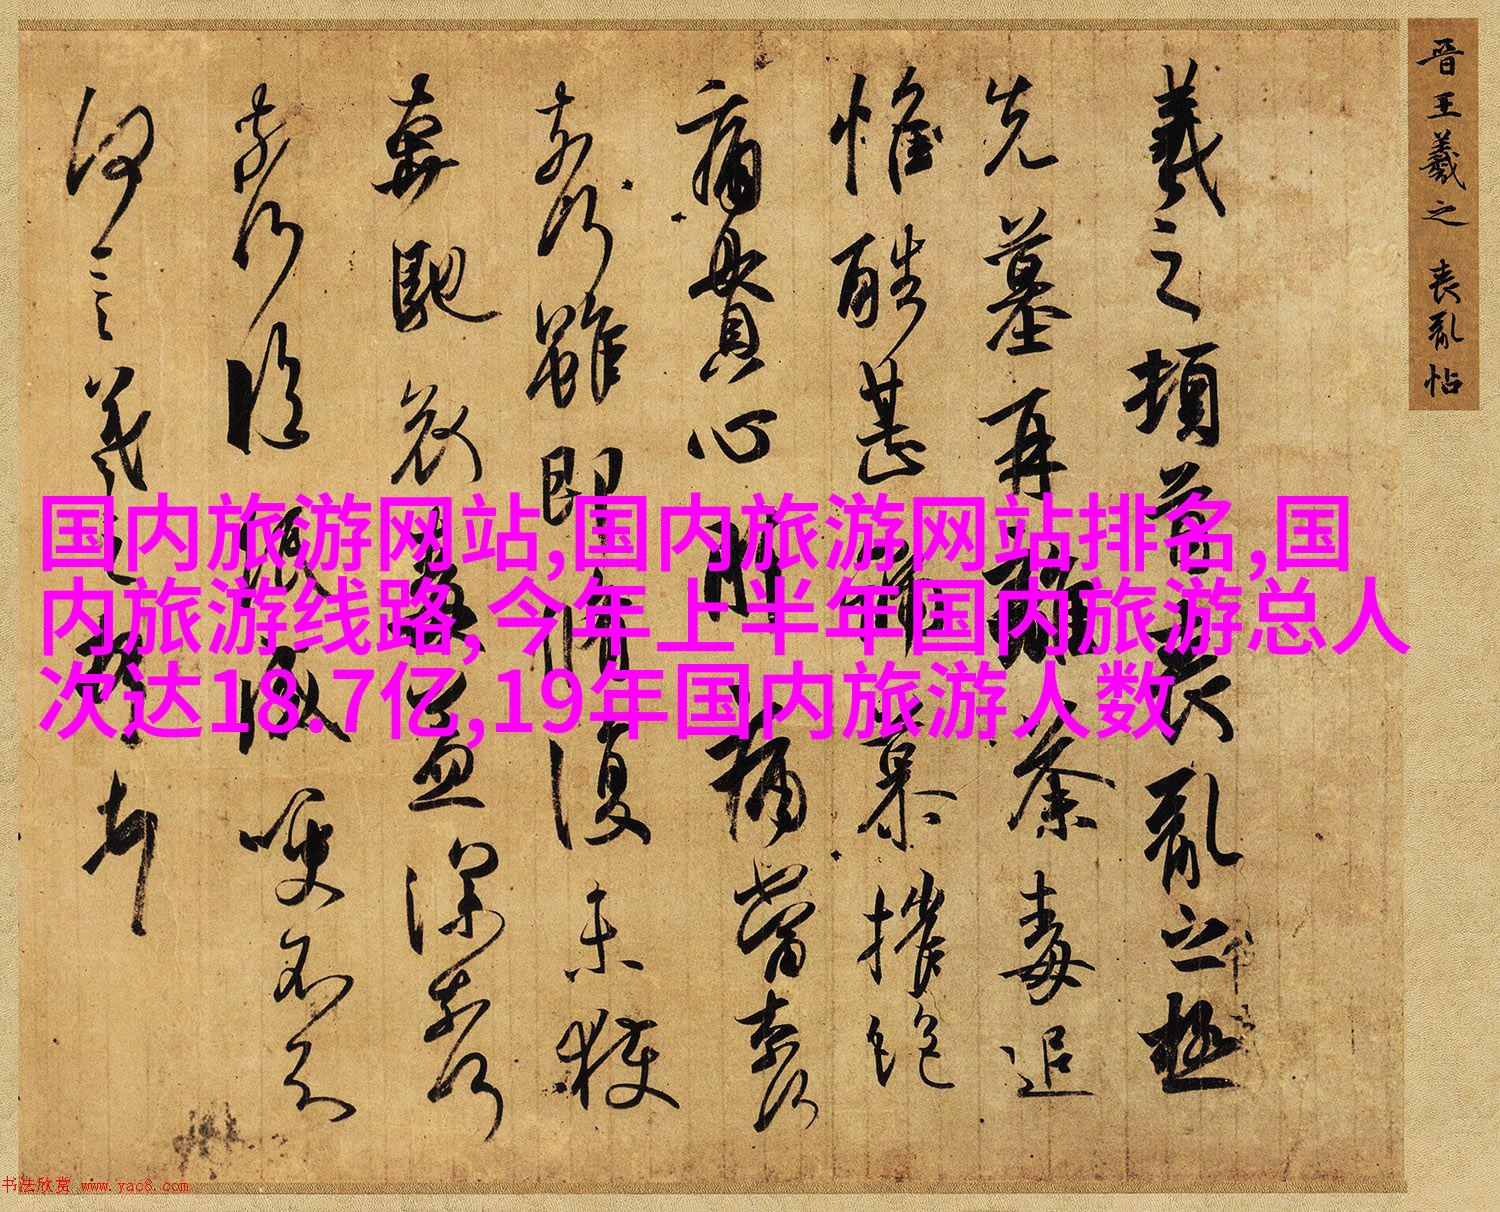 晋王羲之 丧乱帖
羲之顿首丧乱之极
先墓再離荼毒追
惟酷甚號慕摧絶
痛貫心肝痛當奈何
奈何雖即脩復未獲
奔馳哀毒益深奈何
奈何臨紙感哽不知
何言羲之頓首
国内旅游网站,国内旅游网站排名,国
内旅游线路,今年上半年国内旅游总人
次达18.7亿,19年国内旅游人数
书法欣赏 www.yac8.com